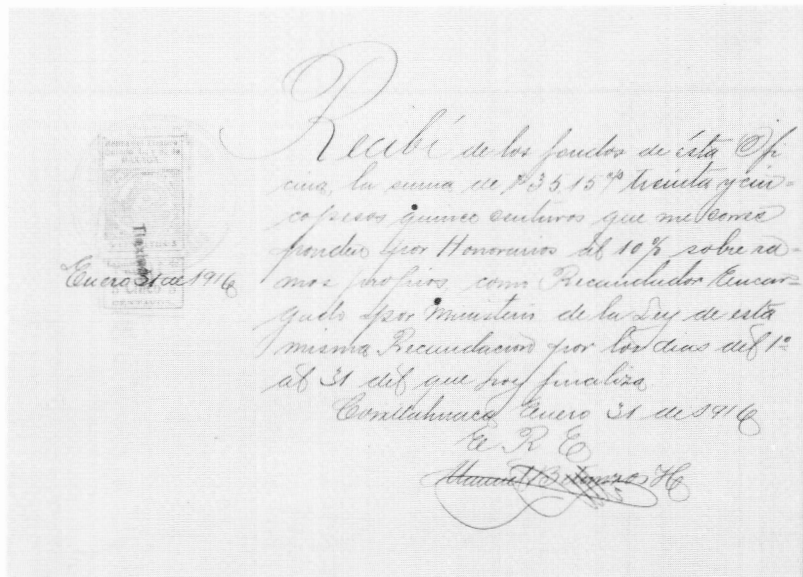 Recibí de los fondos de ésta Ofi
cina, la suma de $35.15 treinta y cin-
co pesos quince centavos que me corres
ponden por Honorarios al 10% sobre ra-
mos propios, como Recaudador Encar-
gado por Ministerio de la Ley de esta
misma Recaudacion por los dias del 1º
al 31 del que hoy finaliza
Enero 31 de 1916
Enero 31 de 1916
E R E